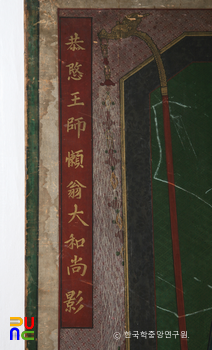 恭愍王師懶翁大和尚影
PUNC
© 한국학중앙연구원